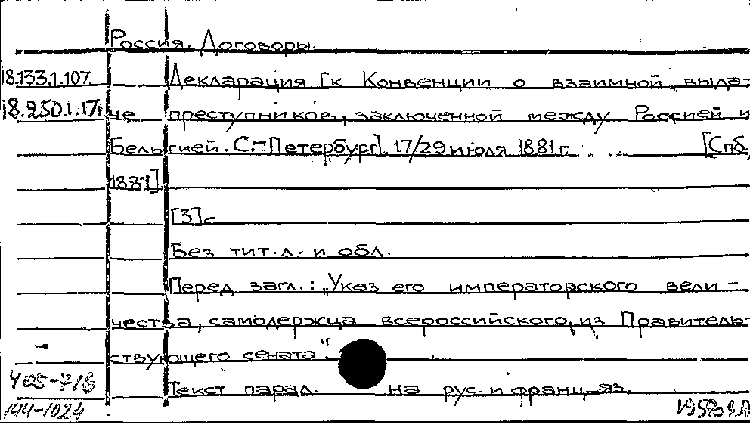 Россия. Договоры.
18.133.1.107. Декларация [к Конвенции о взаимной выда-
18.250.1.171 че преступников, заключенной между Россией и
Бельгией. С.-Петербург]. 17/29 июля 1881 г. ... [Спб,
1881]
[3]с.
Без тит. л. и обл.
Перед загл.: "Указ его императорского вели-
чества, самодержца всероссийского, из Правитель-
ствующего сената".
Текст парал. на рус. и франц. яз.
144-1024